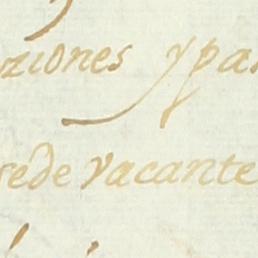 ziones y pa
sede vacante